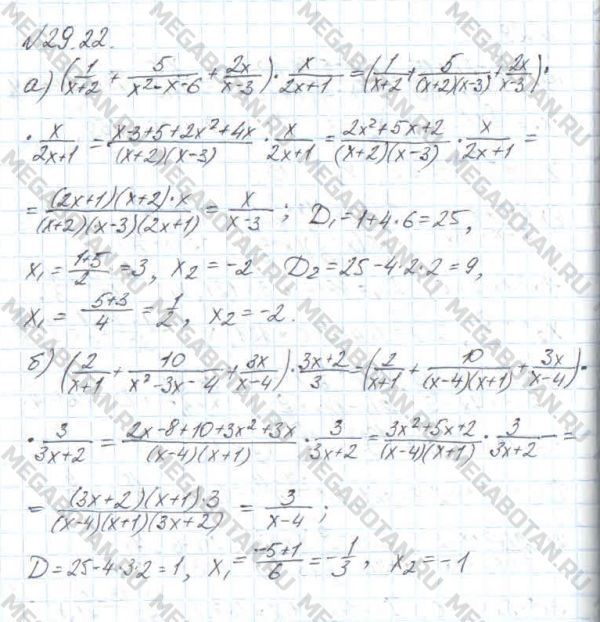 №29.22.
а) (1/(x+2) + 5/(x²-x-6) + 2x/(x-3)) · x/(2x+1) = (1/(x+2) + 5/((x+2)(x-3)) + 2x/(x-3)) ·
· x/(2x+1) = (x-3+5+2x²+4x)/((x+2)(x-3)) · x/(2x+1) = (2x²+5x+2)/((x+2)(x-3)) · x/(2x+1) =
= ((2x+1)(x+2)·x)/((x+2)(x-3)(2x+1)) = x/(x-3); D₁=1+4·6=25,
x₁ = (1+5)/2 = 3, x₂ = -2 D₂=25-4·2·2=9,
x₁ = (5+3)/4 = 1/2, x₂ = -2.
б) (2/(x+1) + 10/(x²-3x-4) + 3x/(x-4)) · (3x+2)/3 = (2/(x+1) + 10/((x-4)(x+1)) + 3x/(x-4)) ·
· 3/(3x+2) = (2x-8+10+3x²+3x)/((x-4)(x+1)) · 3/(3x+2) = (3x²+5x+2)/((x-4)(x+1)) · 3/(3x+2) =
= ((3x+2)(x+1)·3)/((x-4)(x+1)(3x+2)) = 3/(x-4);
D=25-4·3·2=1, x₁ = (-5+1)/6 = -1/3, x₂ = -1
MEGABOTAN.RU